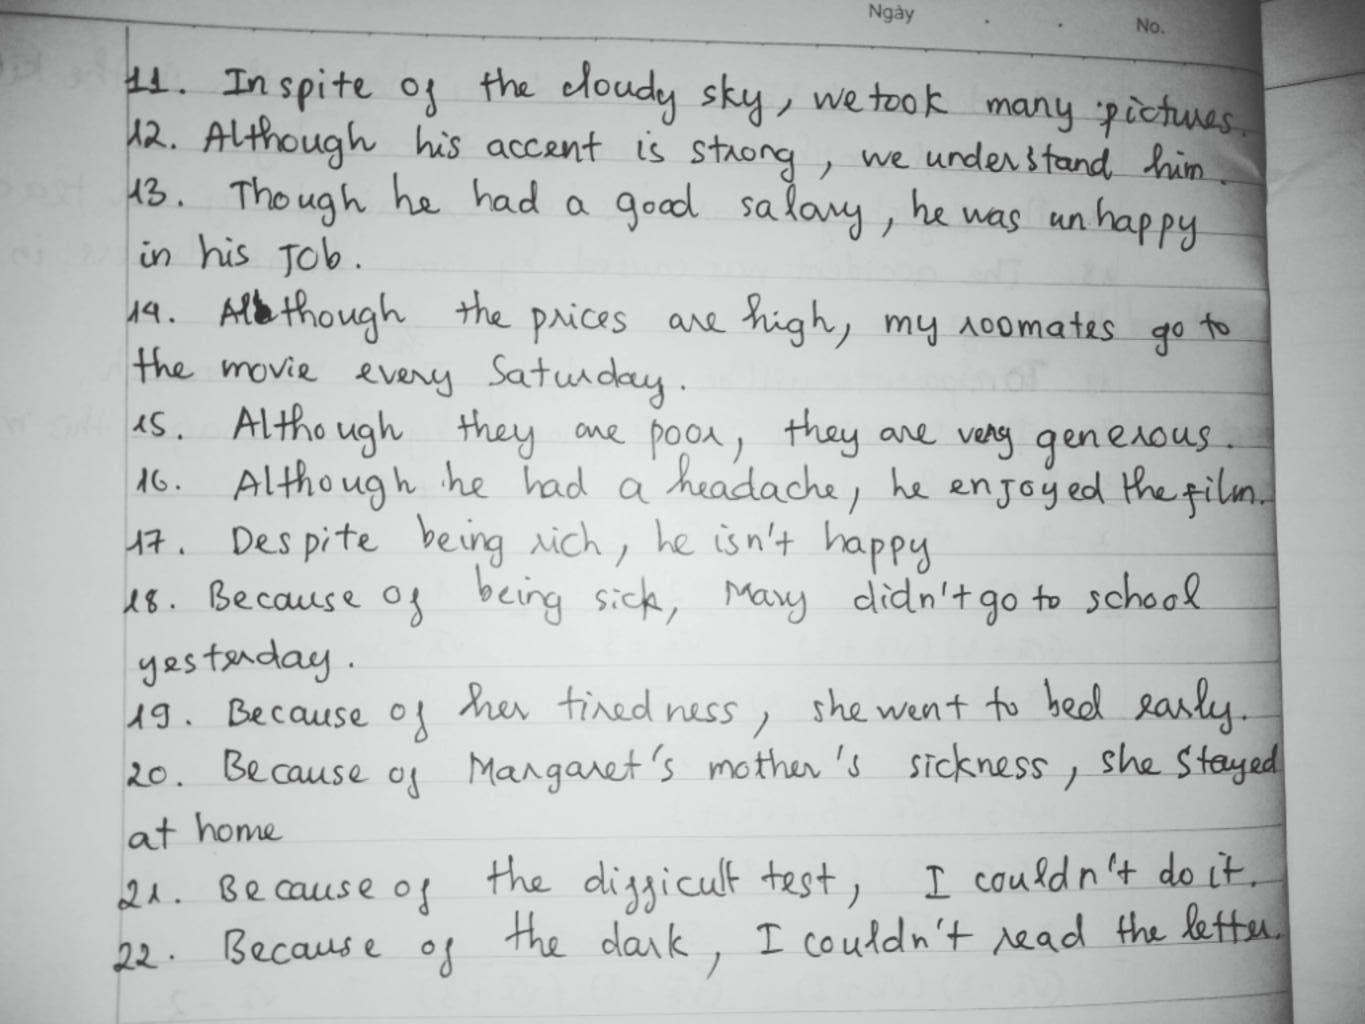 Ngày . . No.
11. Inspite of the cloudy sky, we took many pictures.
12. Although his accent is strong, we understand him.
13. Though he had a good salary, he was unhappy
in his Job.
14. Although the prices are high, my roomates go to
the movie every Saturday.
15. Although they are poor, they are very generous.
16. Although he had a headache, he enjoyed the film.
17. Despite being rich, he isn't happy
18. Because of being sick, Mary didn't go to school
yesterday.
19. Because of her tiredness, she went to bed early.
20. Because of Margaret's mother's sickness, she stayed
at home
21. Because of the difficult test, I couldn't do it.
22. Because of the dark, I couldn't read the letter.